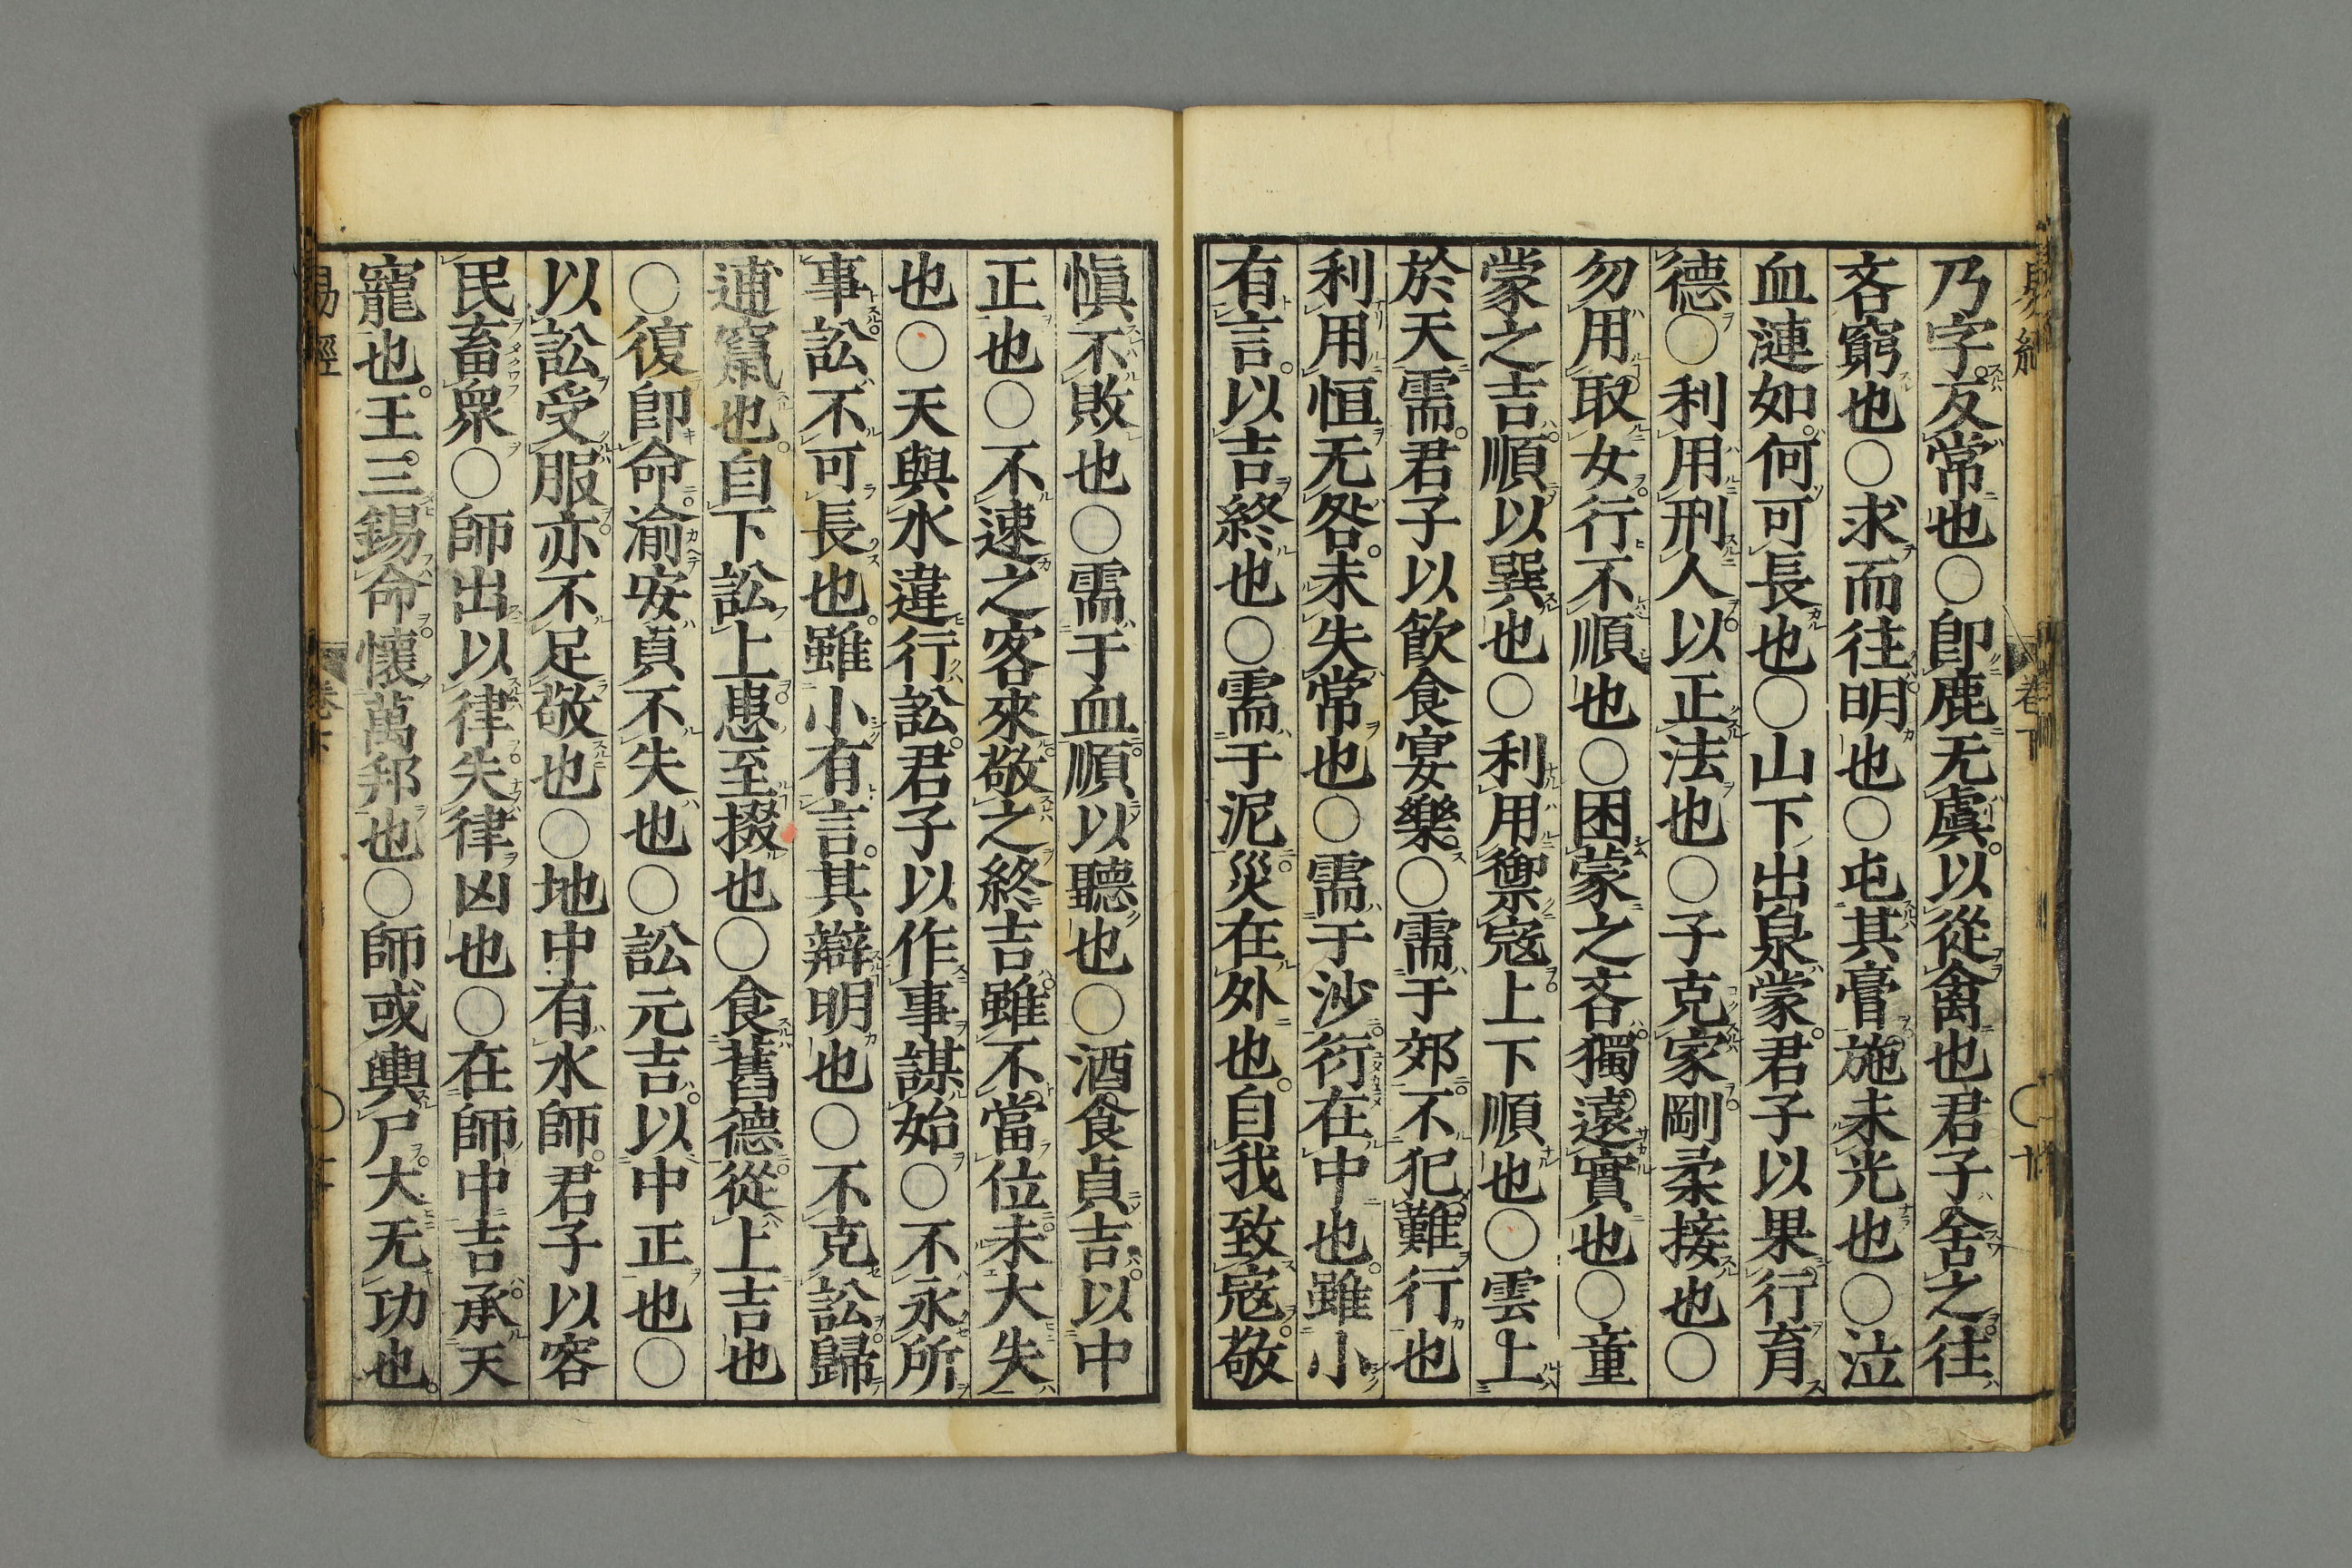 乃字反常也○即鹿无虞以從禽也君子舍之往
吝窮也○求而往明也○屯其膏施未光也○泣
血漣如何可長也○山下出泉蒙君子以果行育
德○利用刑人以正法也○子克家剛柔接也○
勿用取女行不順也○困蒙之吝獨遠實也○童
蒙之吉順以巽也○利用禦寇上下順也○雲上
於天需君子以飲食宴樂○需于郊不犯難行也
利用恒无咎未失常也○需于沙衍在中也雖小
有言以吉終也○需于泥災在外也自我致寇敬
愼不敗也○需于血順以聽也○酒食貞吉以中
正也○不速之客來敬之終吉雖不當位未大失
也○天與水違行訟君子以作事謀始○不永所
事訟不可長也雖小有言其辯明也○不克訟歸
逋竄也自下訟上患至掇也○食舊德從上吉也
○復即命渝安貞不失也○訟元吉以中正也○
以訟受服亦不足敬也○地中有水師君子以容
民畜衆○師出以律失律凶也○在師中吉承天
寵也王三錫命懷萬邦也○師或輿尸大无功也
易經 卷下